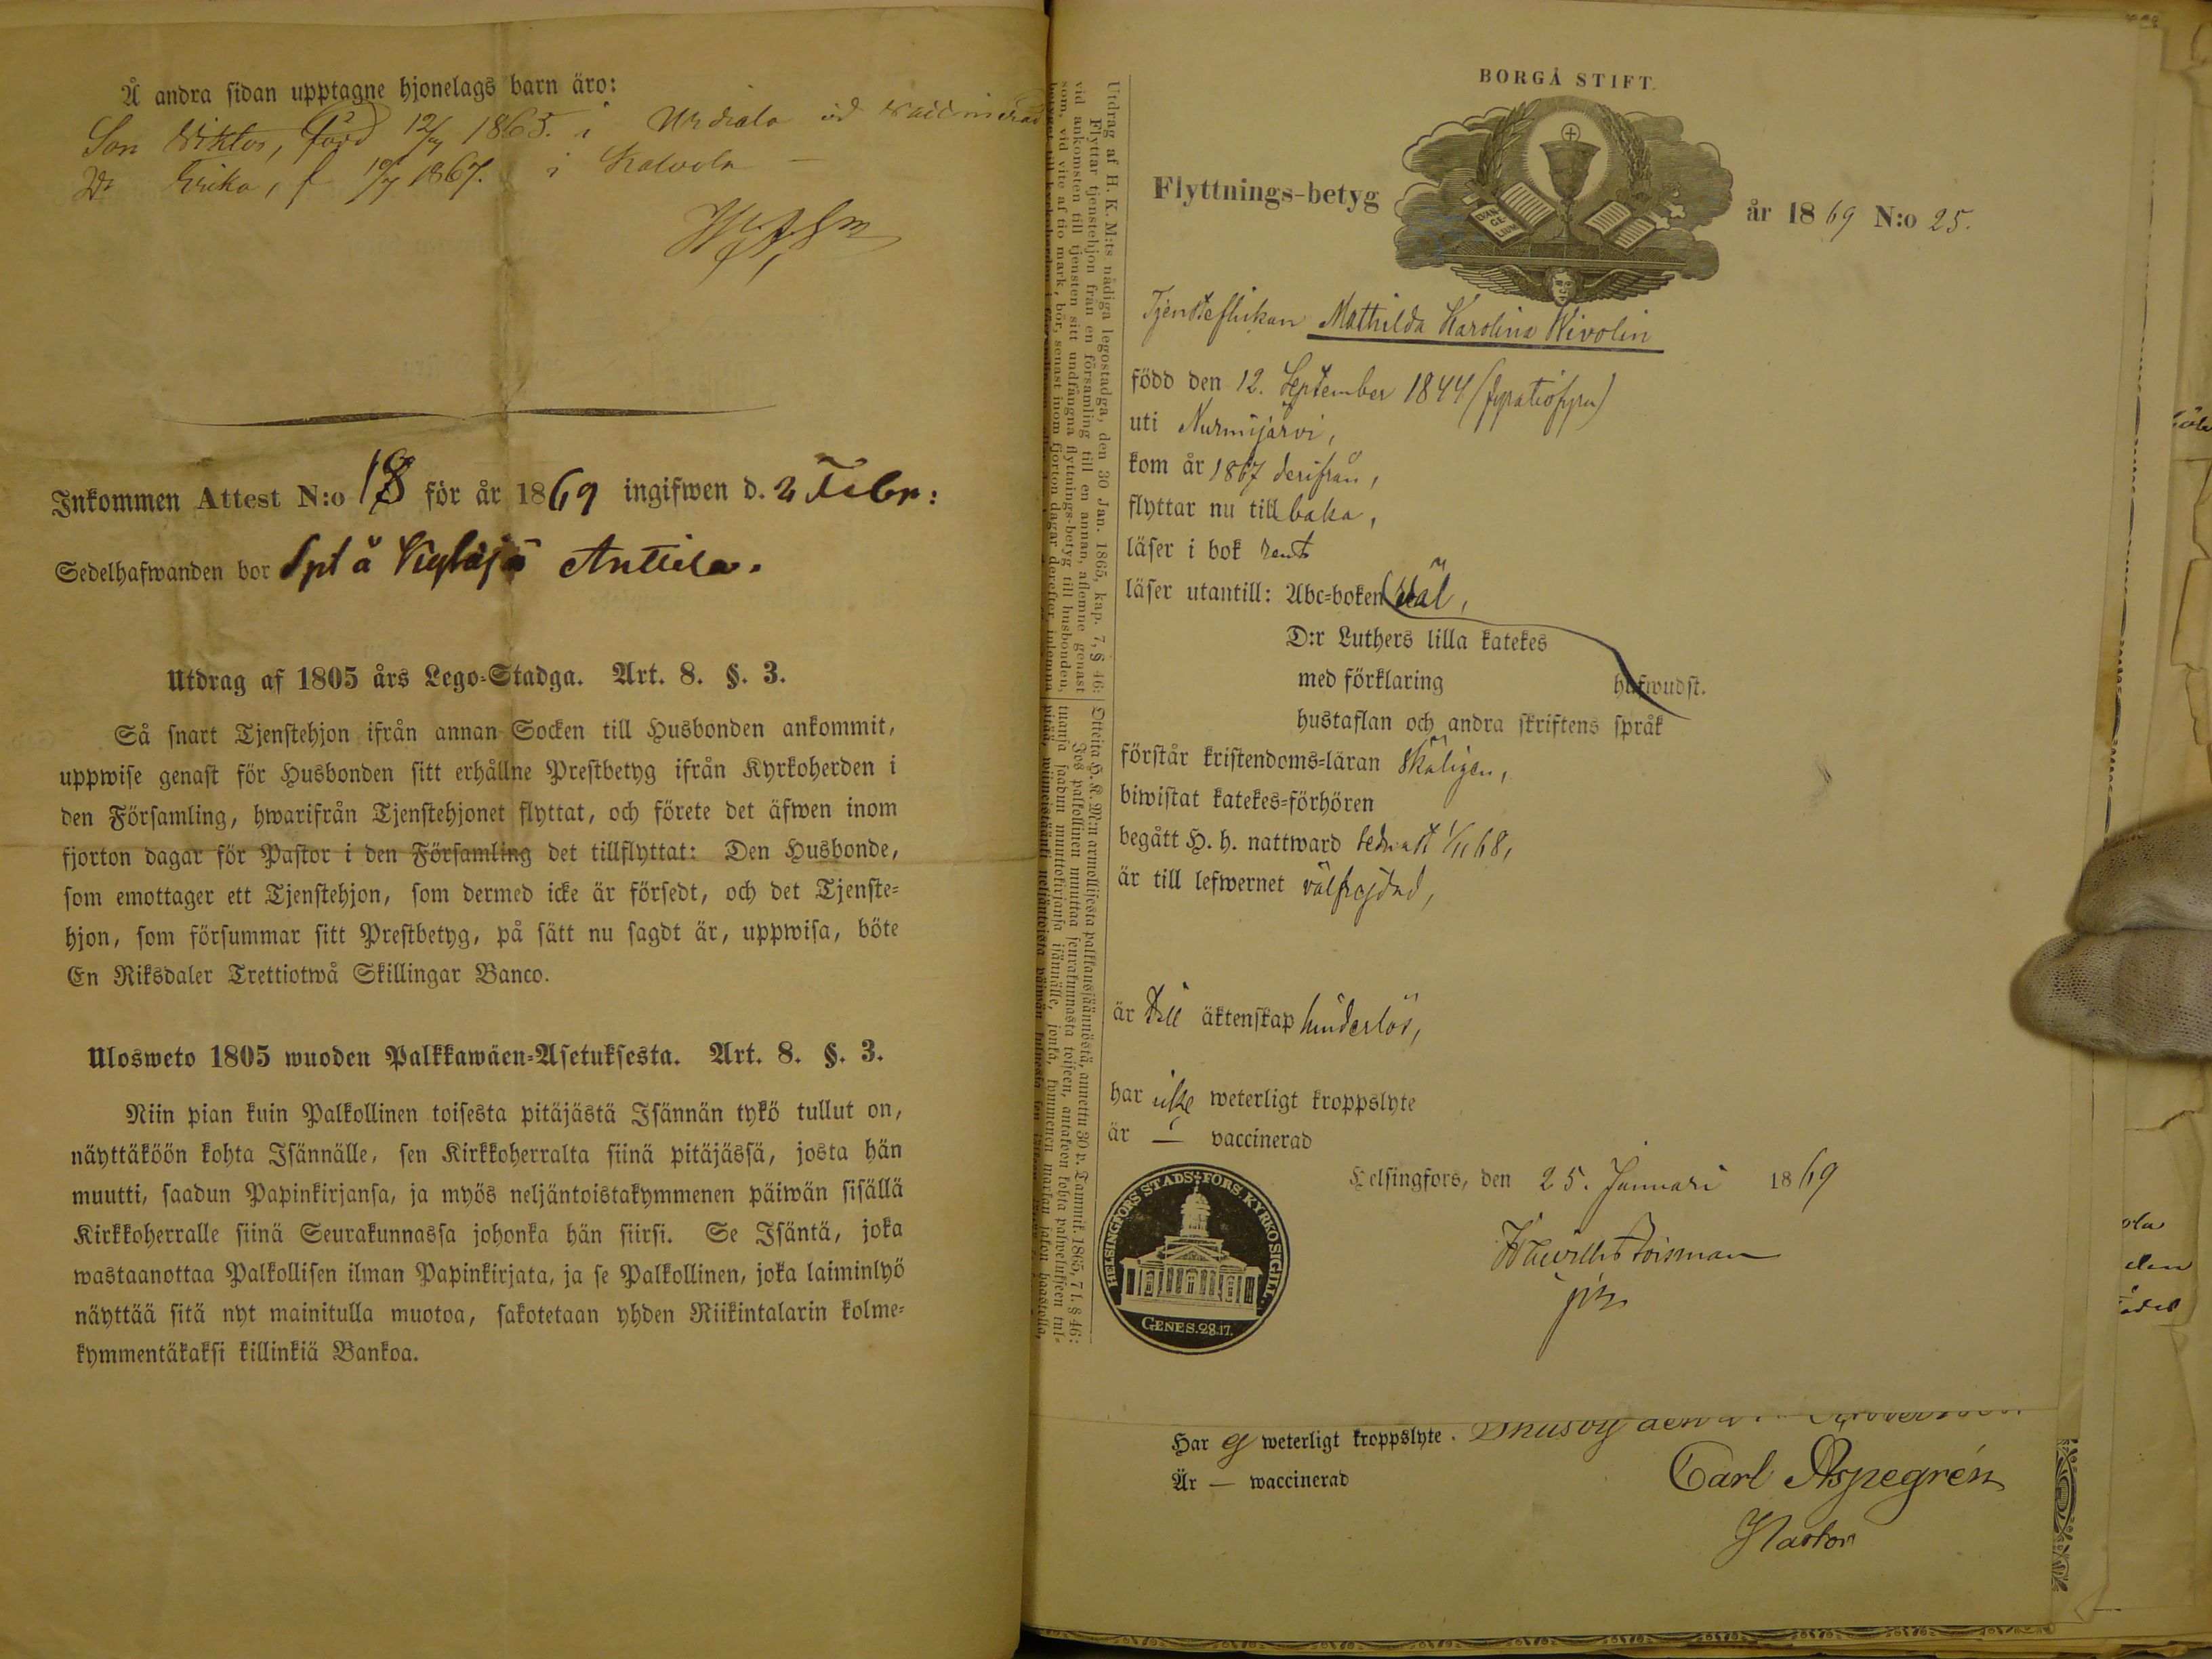 Å andra sidan upptagne hjonelags barn äro:
Son Wiktor, född 12/4 1865. i Urdiala
Erika, f 19/7 1867. i Kalvola —
Inkommen Attest N:o 18 för år 1869 ingifwen d. 2 Febr:
Sedelhafwanden bor Spl å Anttila.
Utdrag af 1805 års Lego-Stadga. Art. 8. §. 3.
Så snart Tjenstehjon ifrån annan Socken till Husbonden ankommit,
uppwise genast för Husbonden sitt erhållne Prestbetyg ifrån Kyrkoherden i
den Församling, hwarifrån Tjenstehjonet flyttat, och förete det äfwen inom
fjorton dagar för Pastor i den Församling det tillflyttat: Den Husbonde,
som emottager ett Tjenstehjon, som dermed icke är försedt, och det Tjenste-
hjon, som försummar sitt Prestbetyg, på sätt nu sagdt är, uppwisa, böte
En Riksdaler Trettiotwå Skillingar Banco.
Ulosweto 1805 wuoden Palkkawäen-Asetuksesta. Art. 8. §. 3.
Niin pian kuin Palkollinen toisesta pitäjästä Isännän tykö tullut on,
näyttäköön kohta Isännälle, sen Kirkkoherralta siinä pitäjässä, josta hän
muutti, saadun Papinkirjansa, ja myös neljäntoistakymmenen päiwän sisällä
Kirkkoherralle siinä Seurakunnassa johonka hän siirsi. Se Isäntä, joka
wastaanottaa Palkollisen ilman Papinkirjata, ja se Palkollinen, joka laiminlyö
näyttää sitä nyt mainitulla muotoa, sakotetaan yhden Riikintalarin kolme-
kymmentäkaksi killinkiä Bankoa.
Utdrag af H. K. M:ts nådiga legostadga, den 30 Jan. 1865, kap. 7, § 46:
Flyttar tjenstehjon från en församling till en annan, aflemne genast
vid ankomsten till tjensten sitt undfångna flyttnings-betyg till husbonden,
som, vid vite af tio mark, bör, senast inom fjorton dagar derefter, inlemna
Otteita H. K. M:n armollisesta palkkaussäännöstä, annettu 30 p. Tammik. 1865, 7 l. § 46:
Jos palkollinen muuttaa seurakunnasta toiseen, antakoon kohta palwelukseen tul-
tuansa saadun muuttokirjansa isännälle, jonka, kymmenen markan sakon haastolla,
BORGÅ STIFT.
EVAN-
GE-
LIUM
Flyttnings-betyg år 1869 N:o 25.
Tjensteflickan Mathilda Karolina Wivolin
född den 12. September 1844 (fyratiofyra)
uti Nurmijärvi,
kom år 1867 derifrån,
flyttar nu tillbaka,
läser i bok rent
läser utantill: Abc-boken väl,
D:r Luthers lilla katekes
med förklaring hufwudst.
hustaflan och andra skriftens språk
förstår kristendoms-läran skäligen,
biwistat katekes-förhören
begått H. h. nattward sednast 1/11 68,
är till lefwernet välfrejdad,
är till äktenskap hinderlös,
har icke weterligt kroppslyte
är — vaccinerad
Helsingfors, den 25. Januari 1869
HELSINGFORS STADS FÖRS. KYRKOSIGILL.
GENES. 28.17.
Har ej weterligt kroppslyte.
Är — waccinerad
Carl Aspegrén
Pastor